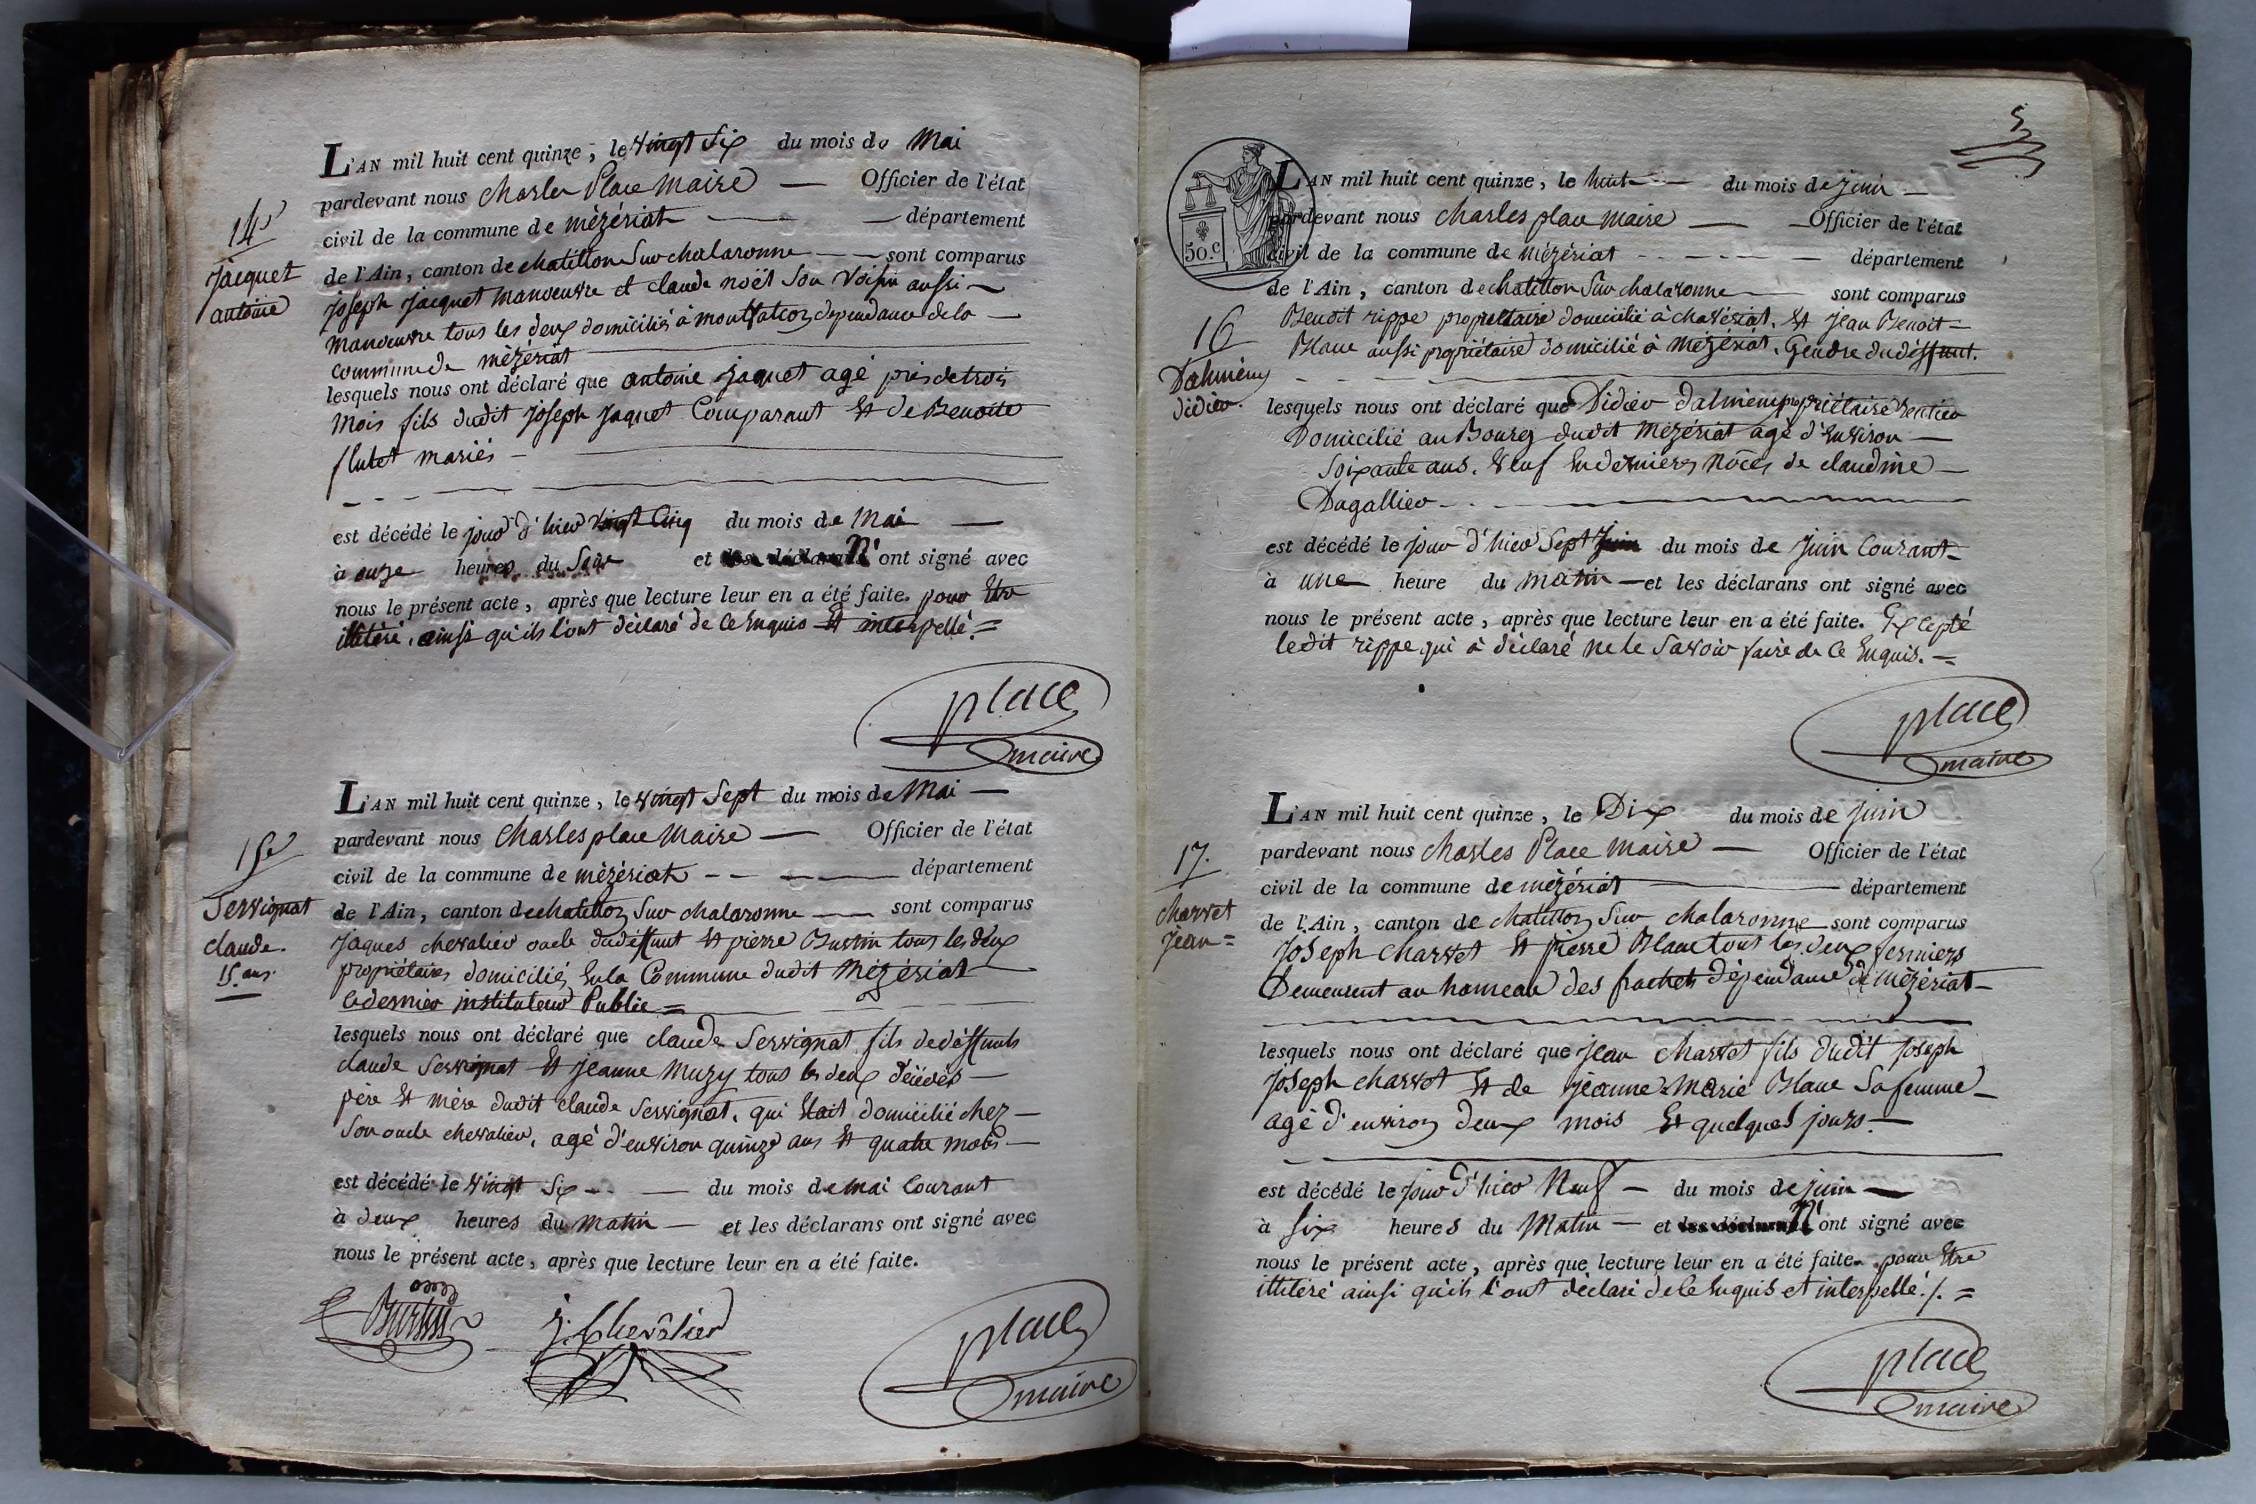 14e
Jacquet
antoine
L'AN mil huit cent quinze, le vingt Six du mois de Mai
pardevant nous Charles Place Maire — Officier de l'état
civil de la commune de mézériat — département
de l'Ain, canton de chatillon Sur chalaronne — sont comparus
joseph jacquet manoeuvre et claude noël Son Voisin aussi
manoeuvre tous les deux domiciliés à montfalcon dependance de la
commune de mézériat
lesquels nous ont déclaré que antoine jaquet agé près de trois
Mois fils dudit joseph jaquet Comparant Et de Benoite
flutet mariés —
est décédé le jour d'hier vingt Cinq du mois de Mai —
à onze heures du Soir et les déclarans N'ont signé avec
nous le présent acte, après que lecture leur en a été faite. pour Etre
illitéré, ainsi qu'ils l'ont déclaré de ce Enquis Et interpellé. =
place
maire
15e
Servignat
claude.
15. ans.
L'AN mil huit cent quinze, le vingt Sept du mois de Mai —
pardevant nous Charles place Maire — Officier de l'état
civil de la commune de mézériat — département
de l'Ain, canton de chatillon Sur chalaronne — sont comparus
jaques chevalier oncle dudéffunt Et pierre Burtin tous les deux
propriétaires domiciliés En la Commune dudit Mézériat
Ce dernier instituteur Public =
lesquels nous ont déclaré que claude Servignat fils de déffunts
claude Servignat Et jeanne Muzy tous les deux décédés —
père Et mère dudit claude Servignat, qui Etait domicilié chez —
Son oncle chevalier, agé d'environ quinze ans Et quatre mois —
est décédé le vingt Six — du mois de mai Courant
à deux heures du Matin — et les déclarans ont signé avec
nous le présent acte, après que lecture leur en a été faite.
Burtin
J. Chevalier
place
maire
5
50. c.
16
Dalmieny
didier.
L'AN mil huit cent quinze, le huit — du mois de juin —
pardevant nous charles place maire — Officier de l'état
civil de la commune de mézériat — département
de l'Ain, canton de chatillon Sur chalaronne — sont comparus
Benoit rippe propriétaire domicilié à chavériat. Et jean Benoit =
Blanc aussi propriétaire domicilié à Mézériat. Gendre du déffunt.
lesquels nous ont déclaré que Didier dalmieny propriétaire rentier
Domicilié au Bourg dudit Mézériat agé d'Environ —
Soixante ans. Veuf En dernieres Nôces de claudine —
Dagallier —
est décédé le jour d'hier Sept juin du mois de juin Courant —
à une heure du matin — et les déclarans ont signé avec
nous le présent acte, après que lecture leur en a été faite. Excepté
ledit rippe qui à déclaré ne le Savoir faire de Ce Enquis. =
place
maire
17.
charvet
jean =
L'AN mil huit cent quinze, le Dix du mois de juin
pardevant nous charles Place Maire — Officier de l'état
civil de la commune de mézériat — département
de l'Ain, canton de chatillon Sur chalaronne — sont comparus
joseph charvet Et pierre Blanc tous les deux fermiers
Demeurent au hameau des frachets dépendance de mézériat —
lesquels nous ont déclaré que jean charvet fils dudit joseph
joseph charvet Et de jeanne-Marie Blanc Sa femme —
agé d'environ deux mois Et quelques jours. —
est décédé le jour d'hier Neuf — du mois de juin —
à Six heures du Matin — et les déclarans N'ont signé avec
nous le présent acte, après que lecture leur en a été faite. pour Etre
illitéré ainsi qu'ils l'ont déclaré de Ce Enquis et interpellé ./. =
place
maire